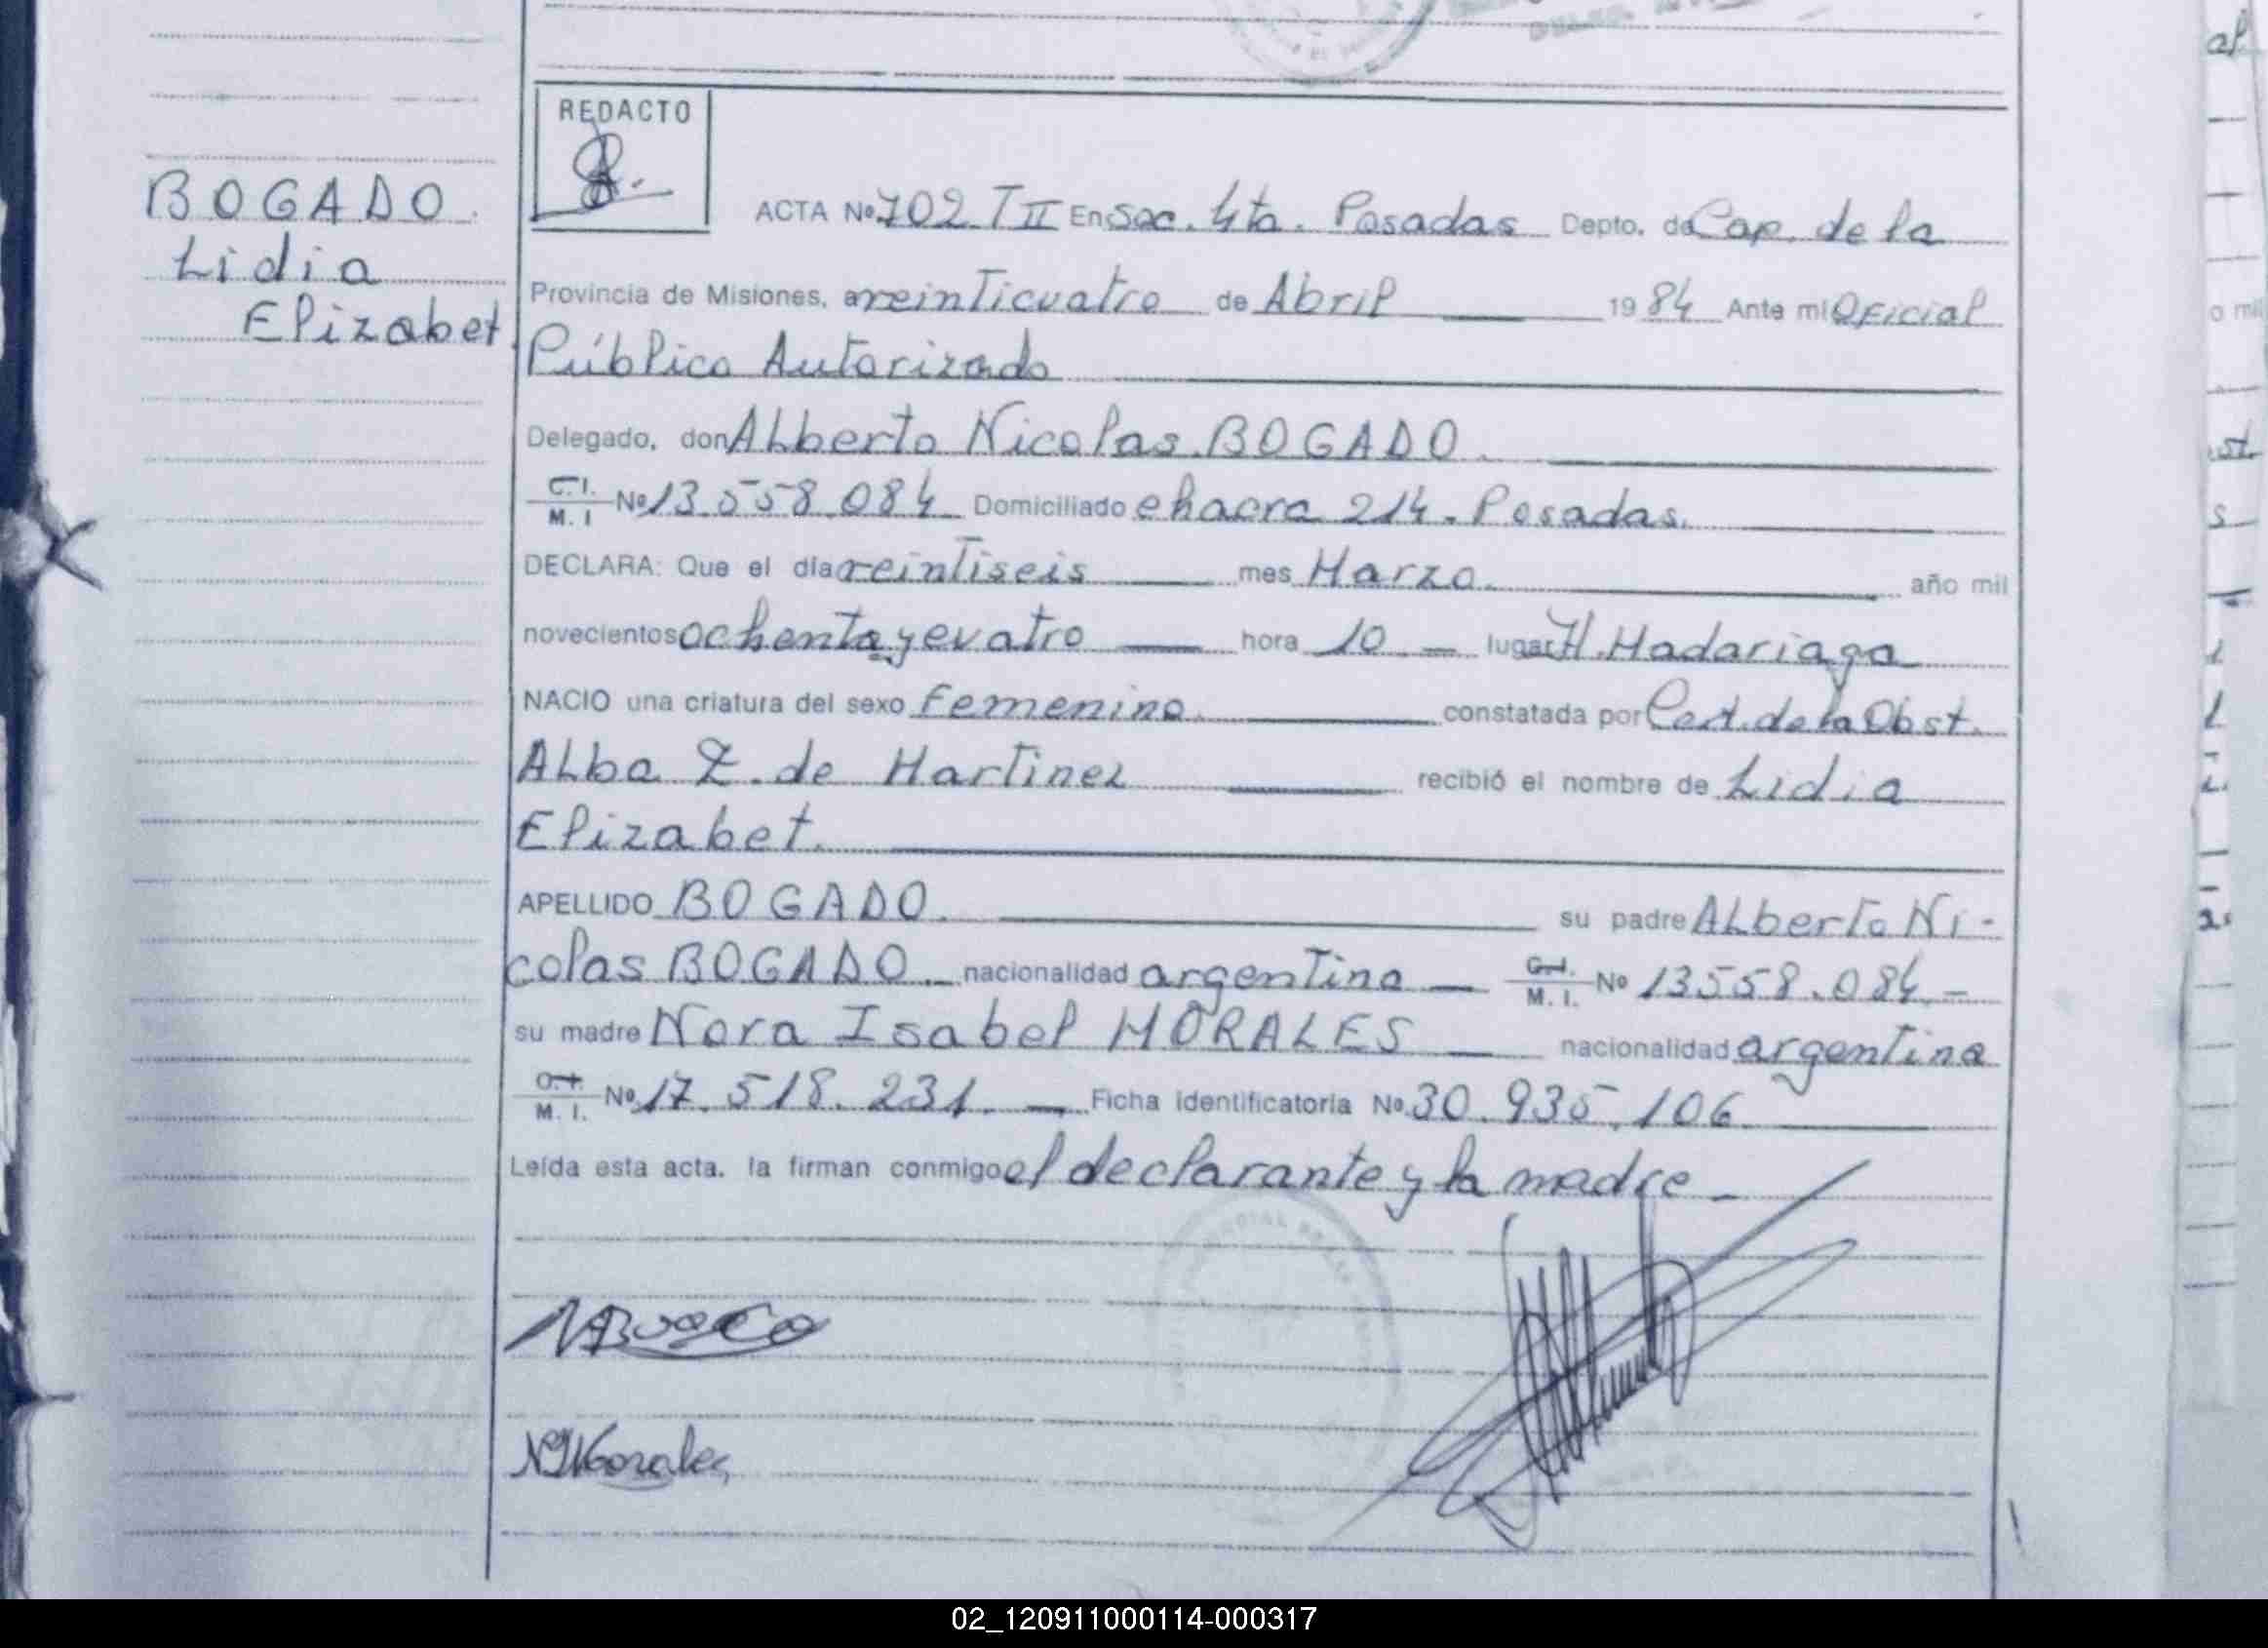 REDACTO
BOGADO
Lidia
Elizabet
ACTA Nº 702 T II En Sec. 4ta. Posadas Depto. de Cap. de la
Provincia de Misiones, a veinticuatro de Abril 1984 Ante mi Oficial
Público Autorizado
Delegado, don Alberto Nicolas BOGADO.
C.I. M.I Nº 13.558.084 Domiciliado chacra 214. Posadas.
DECLARA: Que el día veintiseis mes Marzo. año mil
novecientos ochenta y cuatro hora 10 lugar H. Madariaga
NACIO una criatura del sexo Femenino. constatada por Cert. de la Obst.
Alba Z. de Martinez recibió el nombre de Lidia
Elizabet.
APELLIDO BOGADO. su padre Alberto Ni-
colas BOGADO. nacionalidad argentina C.I. M.I. Nº 13558.084.-
su madre Nora Isabel MORALES nacionalidad argentina
C.I. M.I. Nº 17.518.231. Ficha Identificatoria Nº 30.935.106
Leída esta acta, la firman conmigo el declarante y la madre
NIMorales
02_120911000114-000317